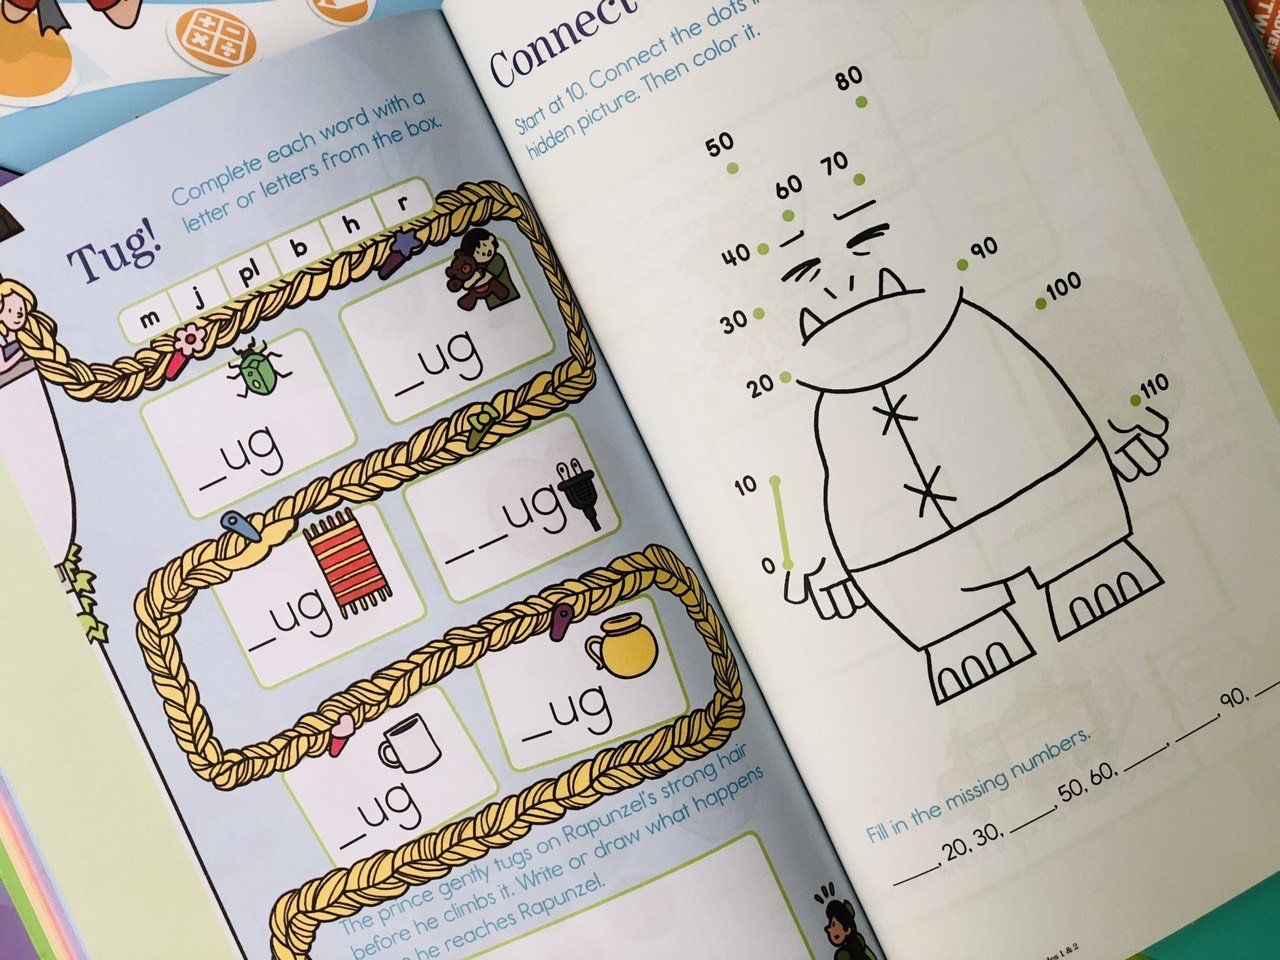 Tug!
Complete each word with a
letter or letters from the box.
m j pl b h r
_ug
_ug
_ug
__ug
_ug
_ug
The prince gently tugs on Rapunzel's strong hair
before he climbs it. Write or draw what happens
he reaches Rapunzel.
Connect
Start at 10. Connect the dots
hidden picture. Then color it.
80
50
70
60
40
90
100
30
20
110
10
0
Fill in the missing numbers.
____, 20, 30, ____, 50, 60, ____, ____, 90, ____
& 2